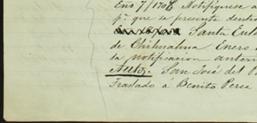 Enº 7/1708 Notifíquese a
pª que se presente dentro
Santa Eul
de Chihuahua Enero
la notificacion anterior
Auto. San José del
Traslado á Benito Perea